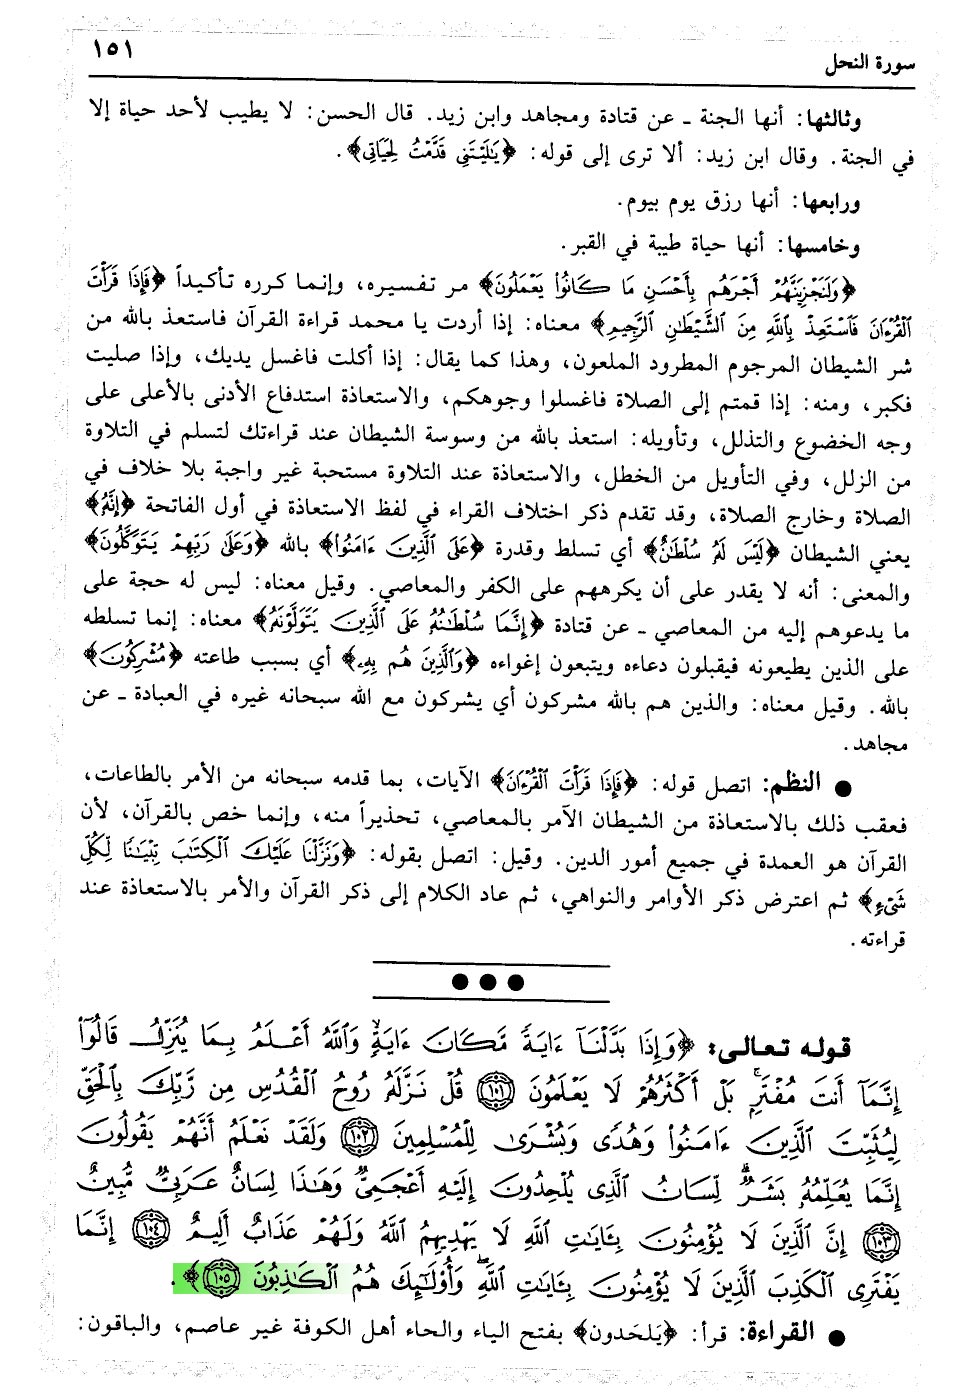 سورة النحل ١٥١
وثالثها: أنها الجنة ـ عن قتادة ومجاهد وابن زيد. قال الحسن: لا يطيب لأحد حياة إلا
في الجنة. وقال ابن زيد: ألا ترى إلى قوله: ﴿يَٰلَيْتَنِي قَدَّمْتُ لِحَيَاتِي﴾.
ورابعها: أنها رزق يوم بيوم.
وخامسها: أنها حياة طيبة في القبر.
﴿وَلَنَجْزِيَنَّهُمْ أَجْرَهُم بِأَحْسَنِ مَا كَانُوا۟ يَعْمَلُونَ﴾ مر تفسيره، وإنما كرره تأكيداً ﴿فَإِذَا قَرَأْتَ
الْقُرْءَانَ فَاسْتَعِذْ بِاللَّهِ مِنَ الشَّيْطَٰنِ الرَّجِيمِ﴾ معناه: إذا أردت يا محمد قراءة القرآن فاستعذ بالله من
شر الشيطان المرجوم المطرود الملعون، وهذا كما يقال: إذا أكلت فاغسل يديك، وإذا صليت
فكبر، ومنه: إذا قمتم إلى الصلاة فاغسلوا وجوهكم، والاستعاذة استدفاع الأدنى بالأعلى على
وجه الخضوع والتذلل، وتأويله: استعذ بالله من وسوسة الشيطان عند قراءتك لتسلم في التلاوة
من الزلل، وفي التأويل من الخطل، والاستعاذة عند التلاوة مستحبة غير واجبة بلا خلاف في
الصلاة وخارج الصلاة، وقد تقدم ذكر اختلاف القراء في لفظ الاستعاذة في أول الفاتحة ﴿إِنَّهُ﴾
يعني الشيطان ﴿لَيْسَ لَهُ سُلْطَٰنٌ﴾ أي تسلط وقدرة ﴿عَلَى الَّذِينَ ءَامَنُوا۟﴾ بالله ﴿وَعَلَىٰ رَبِّهِمْ يَتَوَكَّلُونَ﴾
والمعنى: أنه لا يقدر على أن يكرههم على الكفر والمعاصي. وقيل معناه: ليس له حجة على
ما يدعوهم إليه من المعاصي ـ عن قتادة ﴿إِنَّمَا سُلْطَٰنُهُ عَلَى الَّذِينَ يَتَوَلَّوْنَهُ﴾ معناه: إنما تسلطه
على الذين يطيعونه فيقبلون دعاءه ويتبعون إغواءه ﴿وَالَّذِينَ هُم بِهِ﴾ أي بسبب طاعته ﴿مُشْرِكُونَ﴾
بالله. وقيل معناه: والذين هم بالله مشركون أي يشركون مع الله سبحانه غيره في العبادة ـ عن
مجاهد.
● النظم: اتصل قوله: ﴿فَإِذَا قَرَأْتَ الْقُرْءَانَ﴾ الآيات، بما قدمه سبحانه من الأمر بالطاعات،
فعقب ذلك بالاستعاذة من الشيطان الآمر بالمعاصي، تحذيراً منه، وإنما خص بالقرآن، لأن
القرآن هو العمدة في جميع أمور الدين. وقيل: اتصل بقوله: ﴿وَنَزَّلْنَا عَلَيْكَ الْكِتَٰبَ تِبْيَٰنًا لِّكُلِّ
شَيْءٍ﴾ ثم اعترض ذكر الأوامر والنواهي، ثم عاد الكلام إلى ذكر القرآن والأمر بالاستعاذة عند
قراءته.
● ● ●
قوله تعالى: ﴿وَإِذَا بَدَّلْنَا ءَايَةً مَّكَانَ ءَايَةٍ وَاللَّهُ أَعْلَمُ بِمَا يُنَزِّلُ قَالُوٓا۟
إِنَّمَآ أَنتَ مُفْتَرٍ بَلْ أَكْثَرُهُمْ لَا يَعْلَمُونَ ١٠١ قُلْ نَزَّلَهُ رُوحُ الْقُدُسِ مِن رَّبِّكَ بِالْحَقِّ
لِيُثَبِّتَ الَّذِينَ ءَامَنُوا۟ وَهُدًى وَبُشْرَىٰ لِلْمُسْلِمِينَ ١٠٢ وَلَقَدْ نَعْلَمُ أَنَّهُمْ يَقُولُونَ
إِنَّمَا يُعَلِّمُهُ بَشَرٌ لِّسَانُ الَّذِي يُلْحِدُونَ إِلَيْهِ أَعْجَمِيٌّ وَهَٰذَا لِسَانٌ عَرَبِيٌّ مُّبِينٌ
١٠٣ إِنَّ الَّذِينَ لَا يُؤْمِنُونَ بِـَٔايَٰتِ اللَّهِ لَا يَهْدِيهِمُ اللَّهُ وَلَهُمْ عَذَابٌ أَلِيمٌ ١٠٤ إِنَّمَا
يَفْتَرِي الْكَذِبَ الَّذِينَ لَا يُؤْمِنُونَ بِـَٔايَٰتِ اللَّهِ وَأُو۟لَٰٓئِكَ هُمُ الْكَٰذِبُونَ ١٠٥﴾.
● القراءة: قرأ: ﴿يَلحَدون﴾ بفتح الياء والحاء أهل الكوفة غير عاصم، والباقون: